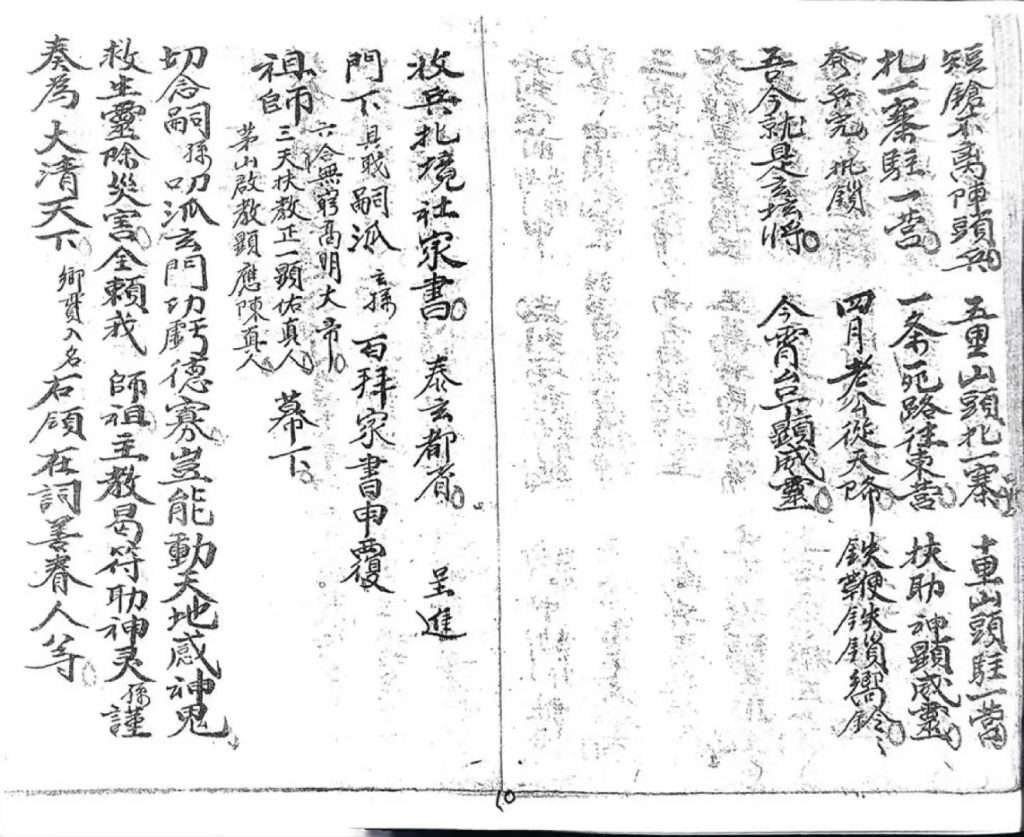 短鎗不离陣頭兵 五里山頭扎一寨 十里山頭駐一营
扎一寨駐一营 一条死路往東营 扶助神顕威靈
発兵完 四月老公從天降 鉄鞭鉄鎖響鈴〻
吾今就是玄坛將 今霄台顕威靈
收兵扎境社家書 泰玄都省 呈進
門下具職嗣派玄孫 百拜家書申覆
六合無窮高明大帝
祖師 三天扶教正一顕佑真人 幕下
茅山啟教顕應陳真人
切念嗣孫叨派玄門功虧德寡豈能動天地感神鬼
救生靈除災害全賴我 師祖主教曷符助神灵孫謹
奏為 大清天下 鄉貫入名 右領在詞善眷人等
10